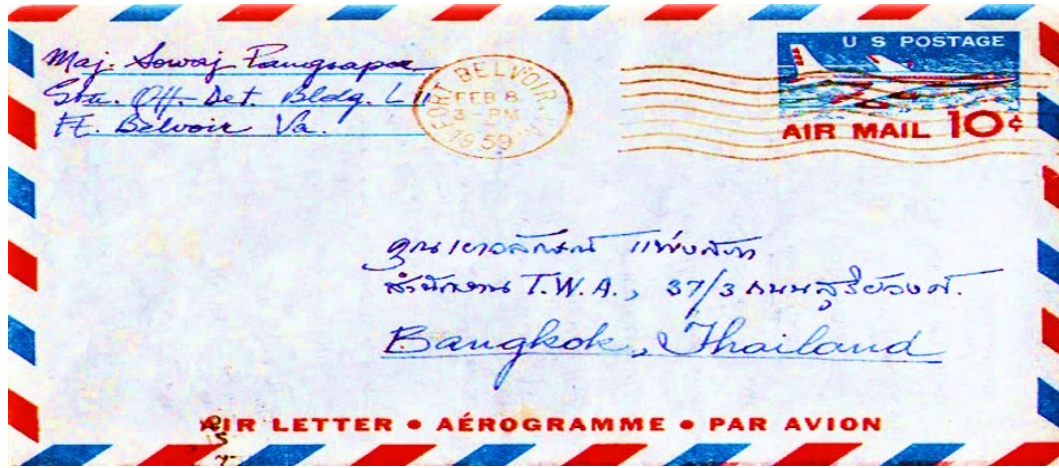 Maj. Sowaj Pangsapa
Stu. Off. Det. Bldg. L
Ft. Belvoir Va.
FORT BELVOIR, VA.
FEB 8
3 - PM
1959
U S POSTAGE
AIR MAIL 10¢
คุณเยาวลักษณ์
สำนักงาน T.W.A., 37/3 ถนนสุริยวงศ์.
Bangkok, Thailand
AIR LETTER • AÉROGRAMME • PAR AVION